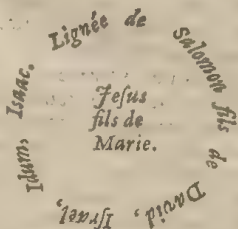 Lignée de Salomon fils de David, Iſrael, Idum, Isaac.
Jeſus
fils de
Marie.